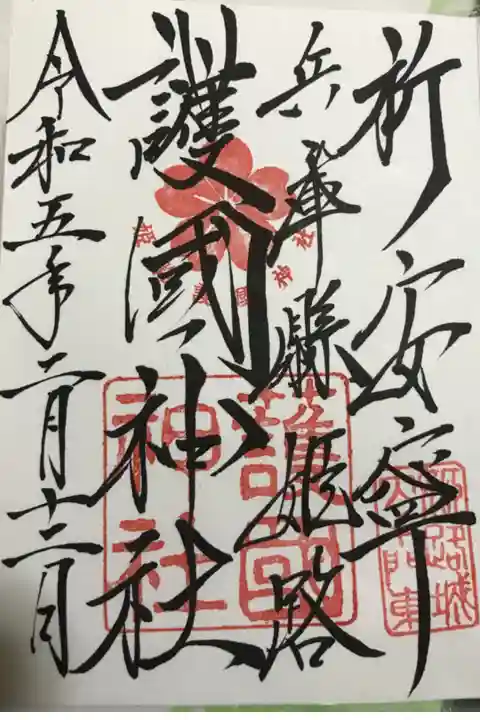 祈安寧
兵庫縣姫路
護國神社
令和五年二月十二日
護國
神社
姫路城